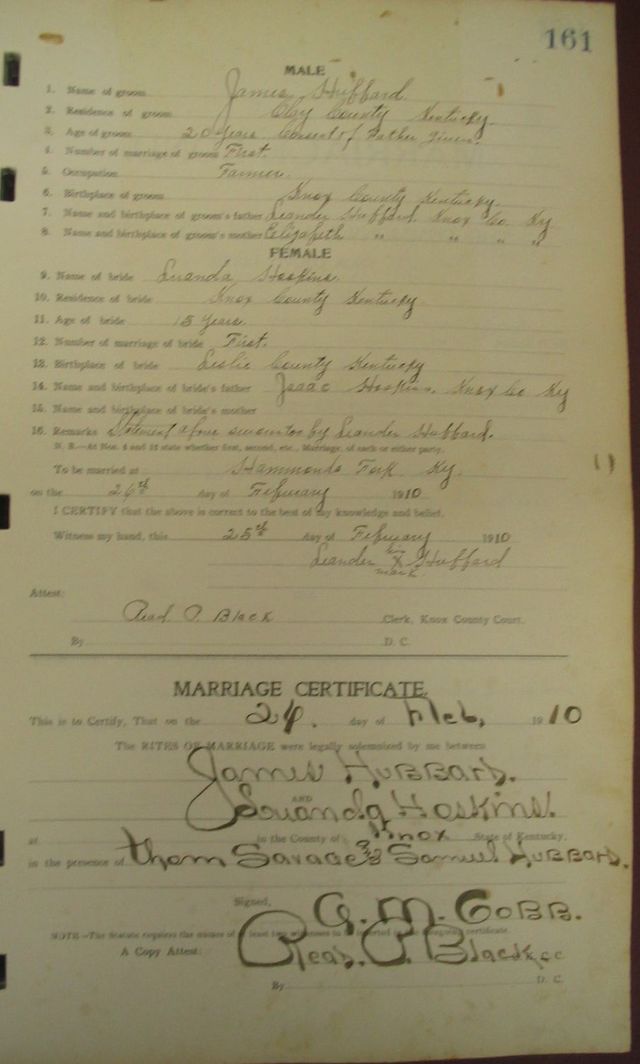 161
MALE
1. Name of groom James Hubbard
2. Residence of groom Clay County Kentucky
3. Age of groom 20 years Consent of Father given.
4. Number of marriage of groom First.
5. Occupation Farmer.
6. Birthplace of groom Knox County Kentucky
7. Name and birthplace of groom's father Leander Hubbard Knox Co. Ky
8. Name and birthplace of groom's mother Elizabeth " " " "
FEMALE
9. Name of bride Luanda Hoskins.
10. Residence of bride Knox County Kentucky
11. Age of bride 15 Years.
12. Number of marriage of bride First.
13. Birthplace of bride Leslie County Kentucky
14. Name and birthplace of bride's father Isaac Hoskins. Knox Co Ky
15. Name and birthplace of bride's mother
16. Remarks Statement above sworn to by Leander Hubbard.
N. B.—At Nos. 4 and 12 state whether first, second, etc., Marriage, of each or either party.
To be married at Hammonds Fork Ky.
on the 26th day of February 1910
I CERTIFY that the above is correct to the best of my knowledge and belief.
Witness my hand, this 25th day of February 1910
Leander his X mark Hubbard
Attest:
Read P. Black Clerk, Knox County Court.
By D. C.
MARRIAGE CERTIFICATE.
This is to Certify, That on the 24. day of Feb, 1910
The RITES OF MARRIAGE were legally solemnized by me between
James Hubbard.
AND
Luanda Hoskins.
at in the County of Knox State of Kentucky,
in the presence of thom Savage & Samuel Hubbard.
Signed, G. M. Cobb.
NOTE—The Statute requires the names of at least two witnesses to be inserted in the foregoing certificate.
A Copy Attest: Read. P. Black cc
By D. C.